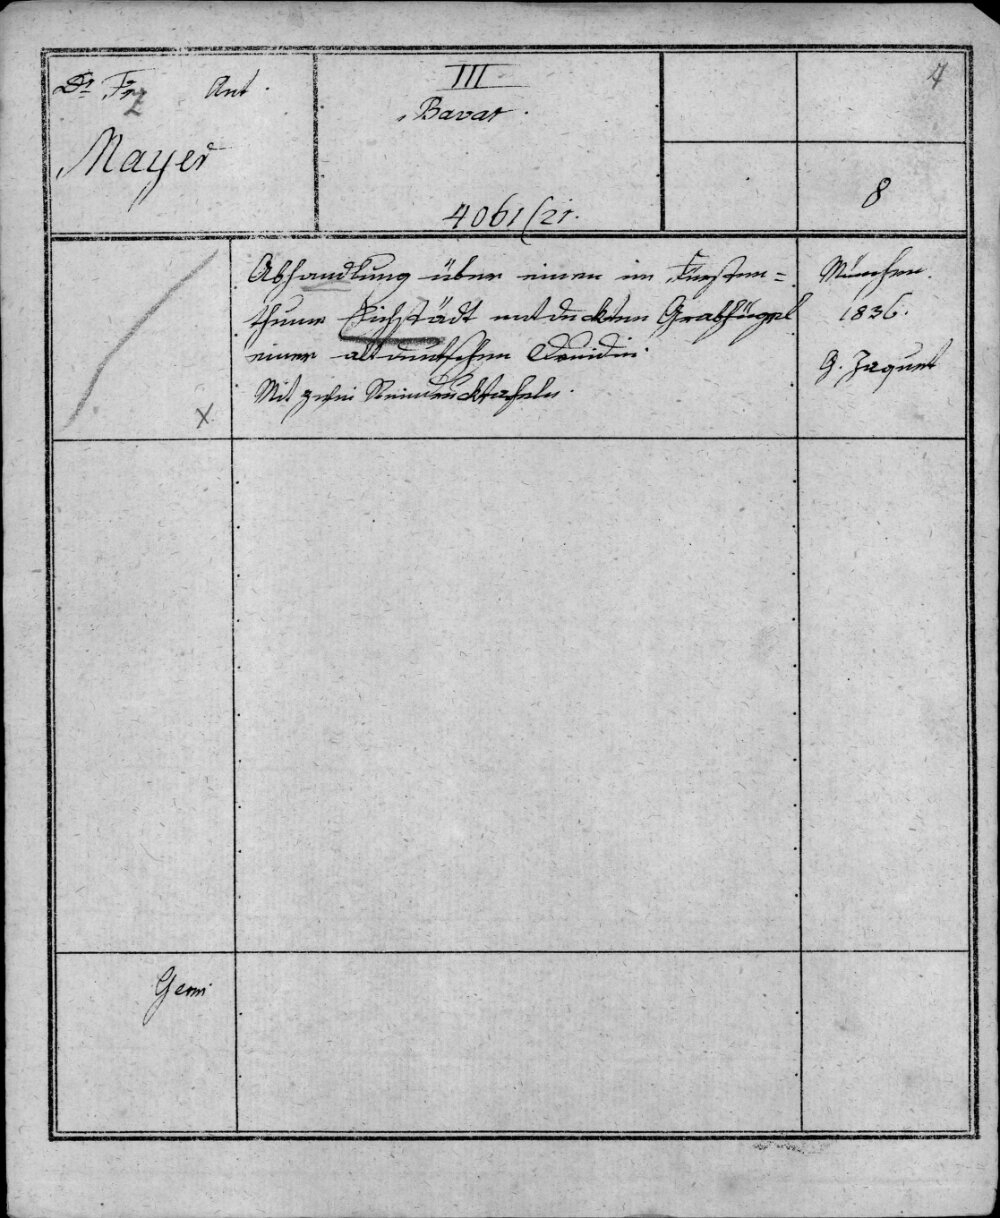 Dr Fz Ant.
Mayer
III
Bavar.
4061/21.
4
8
Abhandlung über einen im Fürsten=
thume Eichstädt entdeckten Grabhügel
einer altdeutschen Druidin.
Mit zwei Steindrucktafeln.
München.
1836.
G. Jaquet
x
Germ